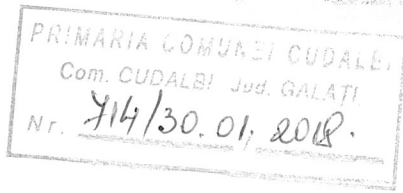 PRIMARIA COMUNEI CUDALBI
Com. CUDALBI Jud. GALATI
Nr. 714/30.01.2018.